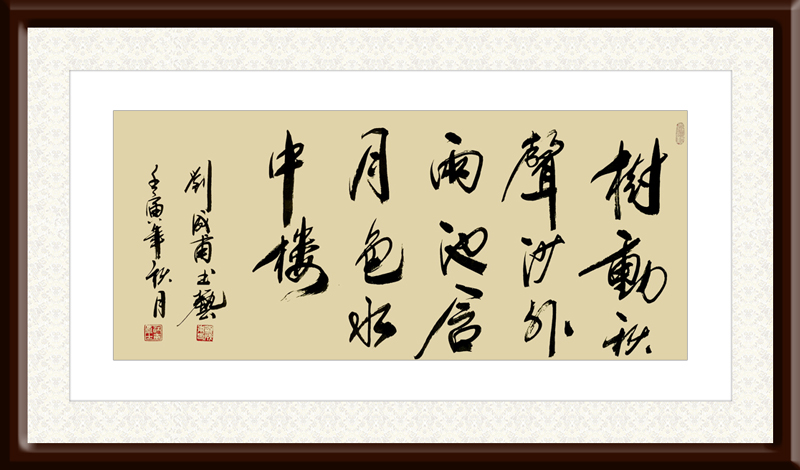 樹動秋
聲沙外
雨池含
月色水
中楼
劉成甫书藝
壬寅年秋月